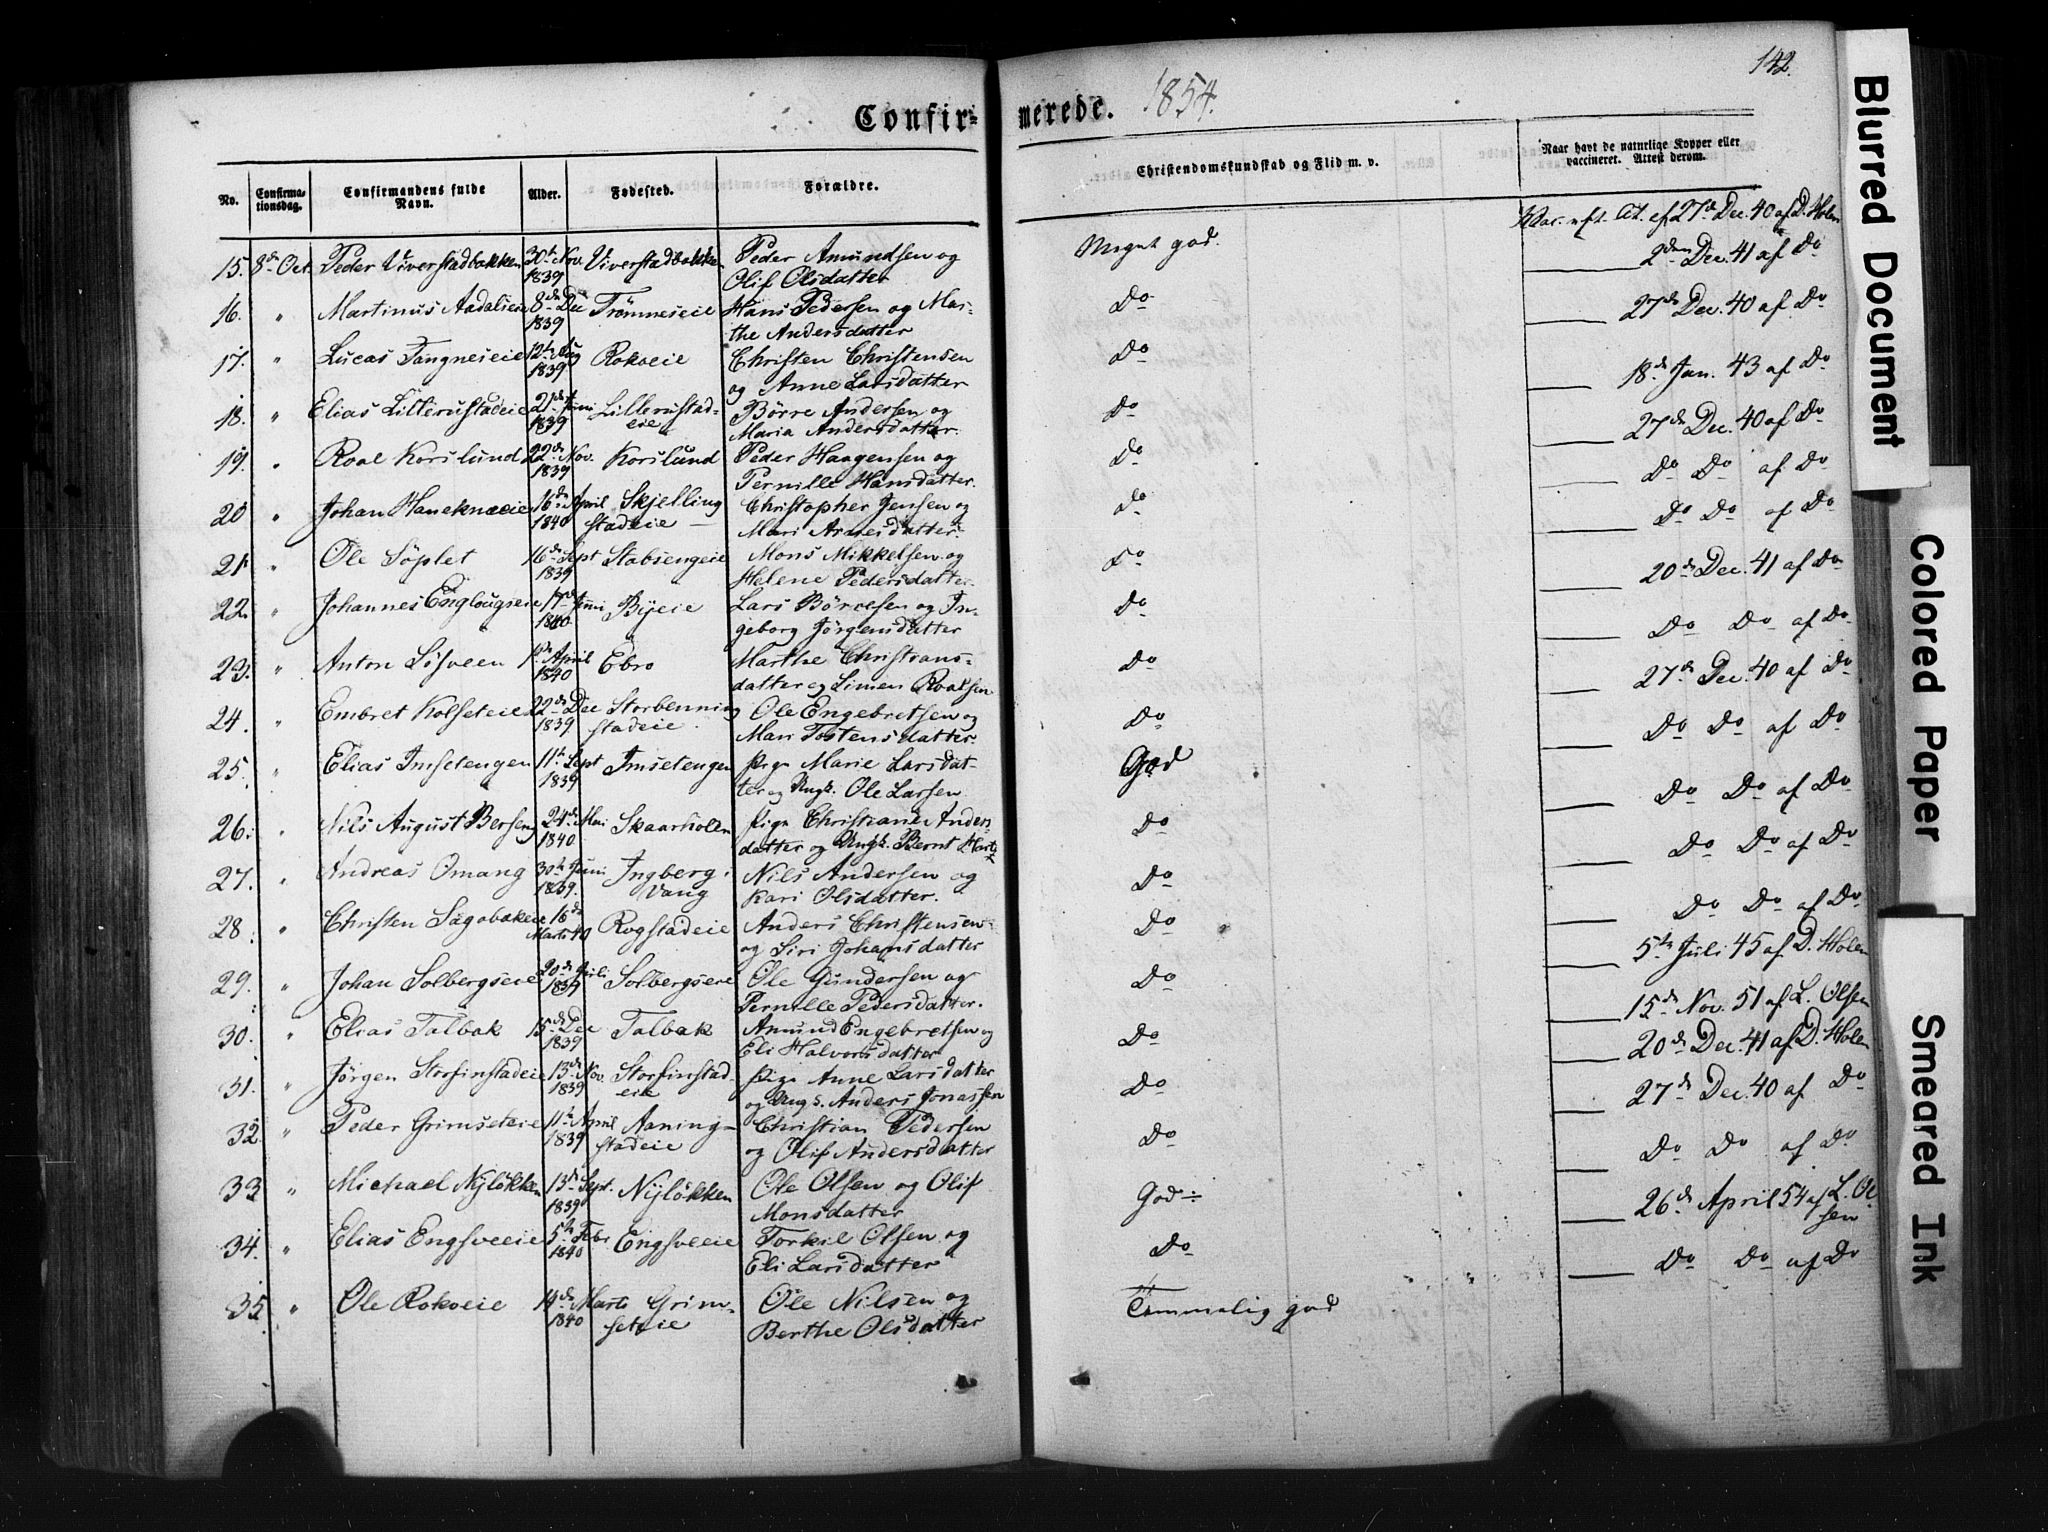 142.
Confir- merede. 1854.
No.
Confirma-
tionsdag.
Confirmandens fulde
Navn.
Alder.
Fødested.
Forældre.
Christendomskundskab og Flid m. v.
Naar havt de naturlige Kopper eller
vaccineret. Attest derom.
15. 8de Oct. Peder Viverstadbakken 30te Nov. Viverstadbakken Peder Amundsen og Meget god. Vac. eft. At. af 27de Dec. 40 af D. Holm
1839 Olif Olsdatter 2den Dec. 41 af Do
16. " Martinus Aadalseie 8de Dec Trømneseie Hans Pedersen og Mar- Do 27de Dec. 40 af Do
1839 the Andersdatter
17. " Lucas Tangneseie 12te Aug Rokoeie Christen Christensen Do 18de Jan. 43 af Do
1839 og Anne Larsdatter
18. " Elias Lillerustadeie 21de Juni Lillerustad- Børre Andersen og Do 27de Dec. 40 af Do
1839 eie Maria Andersdatter.
19. " Roal Korslund 22de Nov. Korslund Peder Haagensen og Do Do Do af Do
1839 Pernille Hansdatter.
20 " Johan Haneknæeie 16de April Skjelling Christopher Jensen og do Do Do af Do
1840 stadeie Mari Arnesdatter.
21. " Ole Søplet 16de Sept Stabsengeie Mons Mikkelsen og Do 20de Dec. 41 af Do
1839 Helene Pedersdatter.
22. " Johannes Englougseie 17de Juni Byeie Lars Børresen og In- Do Do Do af Do
1840 geborg Jørgensdatter
23. " Anton Løsveen 1ste April Ebro Marthe Christians- Do 27de Dec. 40 af Do
1840 datter og Simen Roalsen
24. " Embret Kolseteie 22de Dec Storbenning Ole Engebretsen og Do Do Do af Do
1839 stadeie. Mari Tostensdatter.
25. " Elias Imsetengen 11te Sept Imsetengen Pige Marie Larsdat- God Do Do af Do
1839 ter og Ungk. Ole Larsen
26. " Nils August Berseng 24de Mai Skaarholen Pige Christiane Anders- Do Do Do af Do
1840 datter og Ungk. Bernt
27. " Andreas Omang 30te Juni Ingberg i Nils Andersen og Do Do Do af Do
1839. Vang Kari Olsdatter.
28. " Christen Sagabakeie 16de Rogstadeie Anders Christensen Do 5te Juli 45 af D. Holm
Marts 40 og Siri Johansdatter
29. " Johan Solbergseie 20de Juli Solbergseie Ole Gundersen og Do 15de Nov. 51 af L. Olsen
1839 Pernille Pedersdatter.
30. " Elias Talbak 15de Dec Talbak Amund Engebretsen og Do 20de Dec. 41 af D. Holm
1839 Eli Halvorsdatter
31. " Jørgen Storfinstadeie 13de Nov. Storfinstad- Pige Anne Larsdatter Do 27de Dec. 40 af Do
1839 eie og Ungk. Anders Jonassen
32 " Peder Grimseteie 11te April Aaning- Christian Pedersen Do Do Do af Do
1839 stadeie og Olif Andersdatter
33 " Michael Nyløkken 13de Sept. Nyløkken Ole Olsen og Olif God ÷ 26de April 54 af L. Ol
1839 Monsdatter sen
34. " Elias Engsveeie 5te Febr Engsveeie Torkil Olsen og Do Do Do af Do
1840 Eli Larsdatter
35. " Ole Rokoeie 14de Marts Grim- Ole Nilsen og Temmelig god
1840 seteie Berthe Olsdatter
Blurred Document
Colored Paper
Smeared Ink